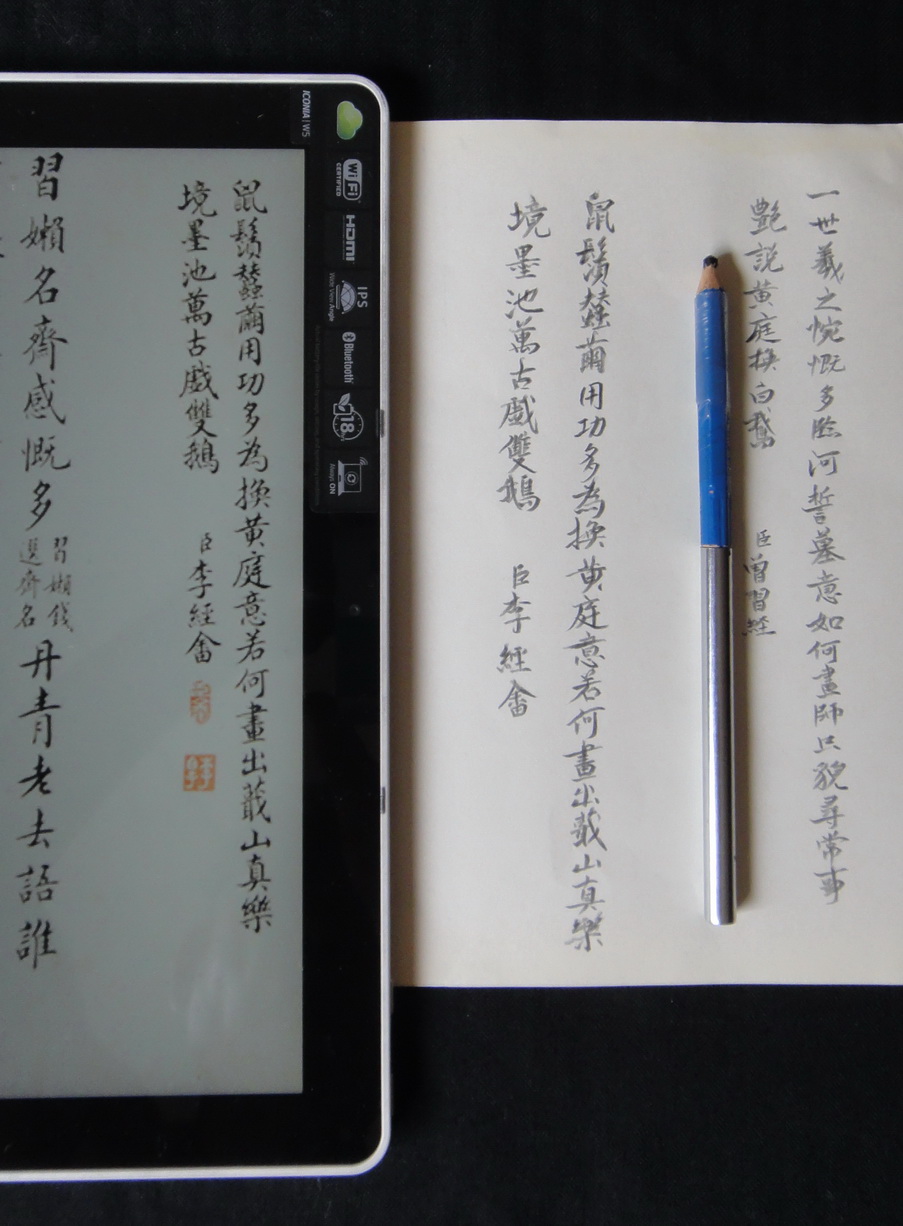 一世羲之惋慨多臨河誓墓意如何畫師只貌尋常事
艷説黄庭換白鵝
臣曾習經
鼠鬚蠶繭用功多為換黄庭意若何畫出蕺山真樂
境墨池萬古戲雙鵝
臣李經畬
ICONIA | W5
Wi Fi CERTIFIED
HDMI
IPS
Wide View Angle
Bluetooth
18
Always ON
鼠鬚蠶繭用功多為換黄庭意若何畫出蕺山真樂
境墨池萬古戲雙鵝
臣李經畬
習嬾名齋感慨多
習嬾錢
選齋名
丹青老去語誰